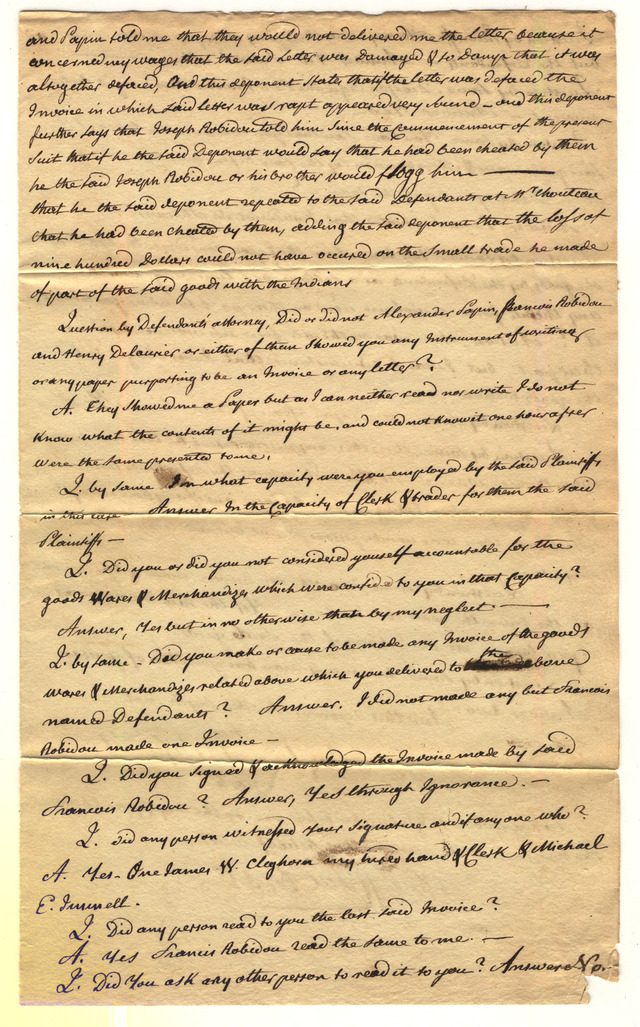 and Papin told me that they would not delivered me the letter because it
concerned my wages that the said Letter was Damaged & so Damp that it was
altogether defaced, And this deponent States that if the letter was defaced the
Invoice in which said letter was rapt appeared very sound – and this deponent
further says that Joseph Robidou told him Since the Commencement of the present
Suit that if he the said Deponent would say that he had been cheated by them
he the said Joseph Robidou or his brother would flogg him —
that he the said deponent repeated to the said Defendants at Mr Chouteau
that he had been cheated by them, adding the said deponent that the loss of
nine hundred Dollars could not have occured on the Small trade he made
of part of the said goods with the Indians
Question by Defendants' attorney, Did or did not Alexander Papin, francois Robidou
and Henry Delaurier or either of them Showed you any Instrument of writing
or any paper purporting to be an Invoice or any letter?
A. They Showed me a Paper but as I can neither read nor write I do not
Know what the contents of it might be, and could not Know it one hour after
were the same presented to me.
Q. by same In what capacity were you employed by the said Plaintiffs
in this case Answer In the Capacity of Clerk & trader for them the said
Plaintiffs –
Q. Did you or did you not considered yourself accountable for the
goods Wares & Merchandizes which were confided to you in that Capacity?
Answer, Yes but in no otherwise than by my neglect —
Q. by same – Did you make or cause to be made any Invoice of the goods
wares & Merchandizes related above which you delivered to the above
named Defendants? Answer. I did not made any but Francois
Robidou made one Invoice –
Q. Did you signed & acknowledged the Invoice made by said
Francois Robidou? Answer, Yes through Ignorance. –
Q. did any person witnessed your Signature and if any one who?
A. Yes – One James W. Cleghorn my hired hand & Clerk & Michael
E. Immell.
Q. Did any person read to you the last said Invoice?
A. Yes Francis Robidou read the same to me. –
Q. Did You ask any other person to read it to you? Answer No –